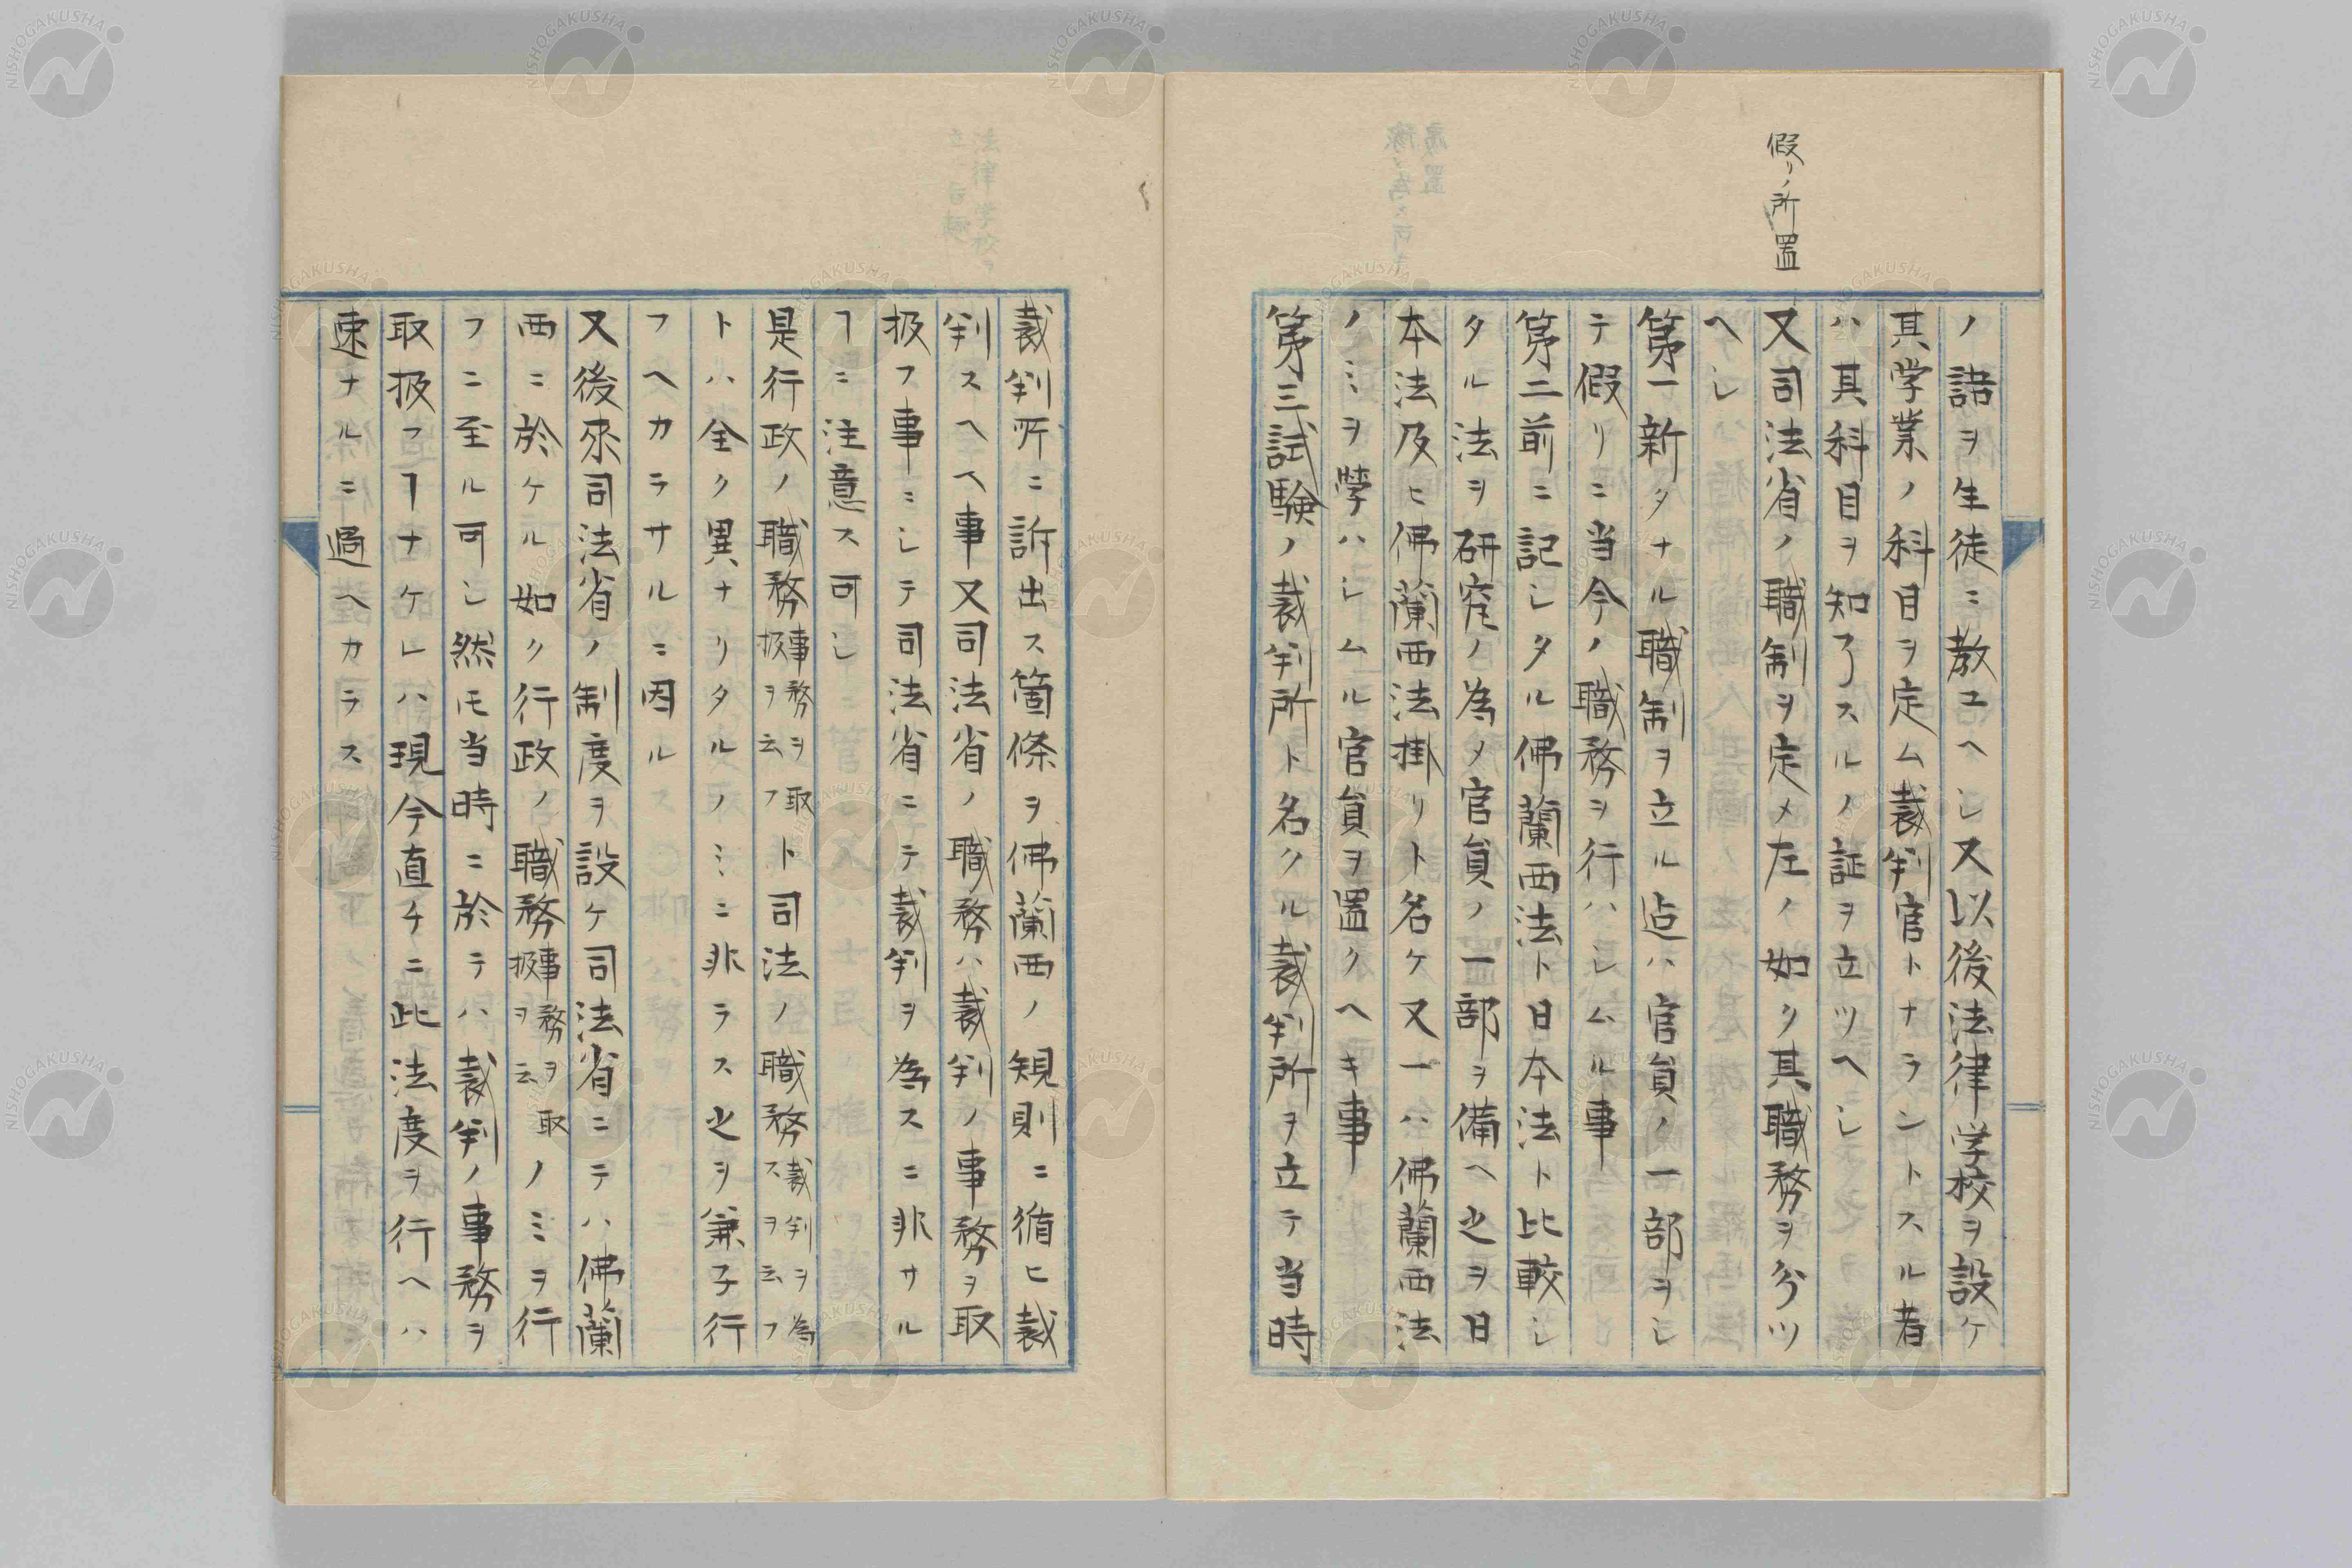 假リノ所置
ノ語ヲ生徒ニ教ユヘシ又以後法律学校ヲ設ケ
其学業ノ科目ヲ定ム裁判官トナラントスル者
ハ其科目ヲ知了スルノ証ヲ立ツヘシ
又司法省ノ職制ヲ定メ左ノ如ク其職務ヲ分ツ
ヘシ
第一新タナル職制ヲ立ル迠ハ官員ノ一部ヲシ
テ假リニ当今ノ職務ヲ行ハシムル事
第二前ニ記シタル佛蘭西法ト日本法ト比較シ
タル法ヲ研究ノ為メ官員ノ一部ヲ備ヘ之ヲ日
本法及ヒ佛蘭西法掛リト名ケ又一ハ佛蘭西法
ノミヲ学ハレムル官員ヲ置クヘキ事
第三試験ノ裁判所ト名クル裁判所ヲ立テ当時
裁判所ニ訴出ス箇條ヲ佛蘭西ノ規則ニ循ヒ裁
判スヘヘ事又司法省ノ職務ハ裁判ノ事務ヲ取
扱フ事ニシテ司法省ニテ裁判ヲ為スニ非サル
ヿニ注意ス可シ
是行政ノ職務事務ヲ取扱ヲ云フト司法ノ職務裁判ヲ為スヲ云フ
トハ全ク異ナリタルノミニ非ラス之ヲ兼子行
フヘカラサルニ因ル
又後来司法省ノ制度ヲ設ケ司法省ニテハ佛蘭
西ニ於ケル如ク行政ノ職務事務ヲ取扱ヲ云ノミヲ行
フニ至ル可シ然モ当時ニ於テハ裁判ノ事務ヲ
取扱フヿナケレハ現今直チニ此法度ヲ行ヘハ
速ナルニ過ヘカラス
NISHOGAKUSHA